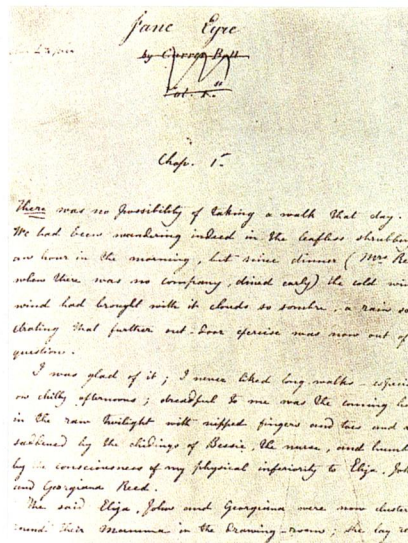 Jane Eyre
by Currer Bell
Vol. 1st
Chap. 1st
There was no possibility of taking a walk that day.
We had been wandering indeed in the leafless shrubber
an hour in the morning, but since dinner (Mrs Ree
when there was no company, dined early) the cold win
wind had brought with it clouds so sombre, a rain so
etrating that further out-door exercise was now out of
question.
I was glad of it; I never liked long walks - especia
on chilly afternoons; dreadful to me was the coming ho
in the raw twilight with nipped fingers and toes and a
saddened by the chidings of Bessie, the nurse, and humb
by the consciousness of my physical inferiority to Eliza, Joh
and Georgiana Reed.
The said Eliza, John and Georgiana were now cluster
round their Mamma in the drawing-room; she lay re